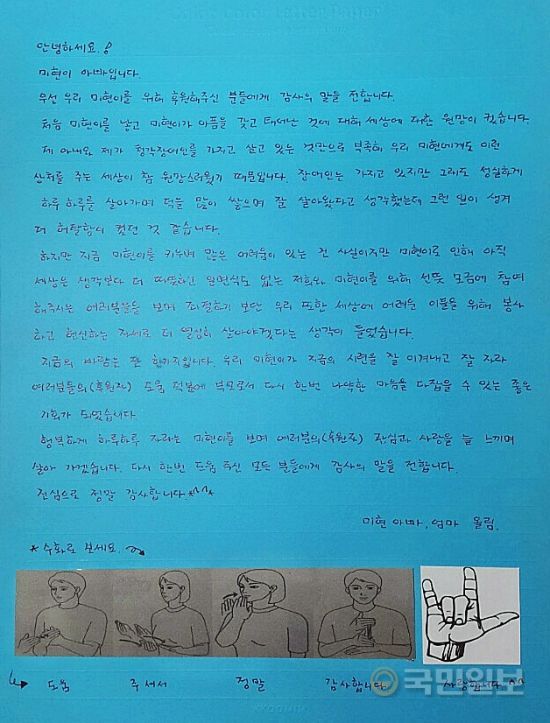 Color Letter Paper
안녕하세요. !
미현이 아빠입니다.
우선 우리 미현이를 위해 후원해주신 분들에게 감사의 말을 전합니다.
처음 미현이를 낳고 미현이가 아픔을 갖고 태어난 것에 대해 세상에 대한 원망이 컸습니다.
제 아내와 제가 청각장애인을 가지고 살고 있는 것만으로 벅찬데 우리 미현에게도 이런
상처를 주는 세상이 참 원망스러웠기 때문입니다. 장애인은 가지고 있지만 그래도 성실하게
하루 하루를 살아가며 덕을 많이 쌓으며 잘 살아왔다고 생각했는데 그런 일이 생겨
더 허탈함이 컸던 것 같습니다.
하지만 지금 미현이를 키우며 많은 어려움이 있는 건 사실이지만 미현이로 인해 아직
세상은 생각보다 더 따뜻하고 일면식도 없는 저희와 미현이를 위해 선뜻 모금에 참여
해주시는 여러분들을 보며 좌절하기 보단 우리 또한 세상에 어려운 이들을 위해 봉사
하고 헌신하는 자세로 더 열심히 살아야겠다는 생각이 들었습니다.
지금의 바람은 딱 한가지입니다. 우리 미현이가 지금의 시련을 잘 이겨내고 잘 자라
여러분들의(후원자) 도움 덕분에 부모로서 다시 한번 나약한 마음을 다잡을 수 있는 좋은
기회가 되었습니다.
행복하게 하루하루 자라는 미현이를 보며 여러분의(후원자) 진심과 사랑을 늘 느끼며
살아 가겠습니다. 다시 한번 도움 주신 모든 분들에게 감사의 말을 전합니다.
진심으로 정말 감사합니다.*^^*
미현 아빠, 엄마 올림.
* 수화로 보세요.
도움 주셔서 정말 감사합니다. 사랑합니다.^^
국민일보